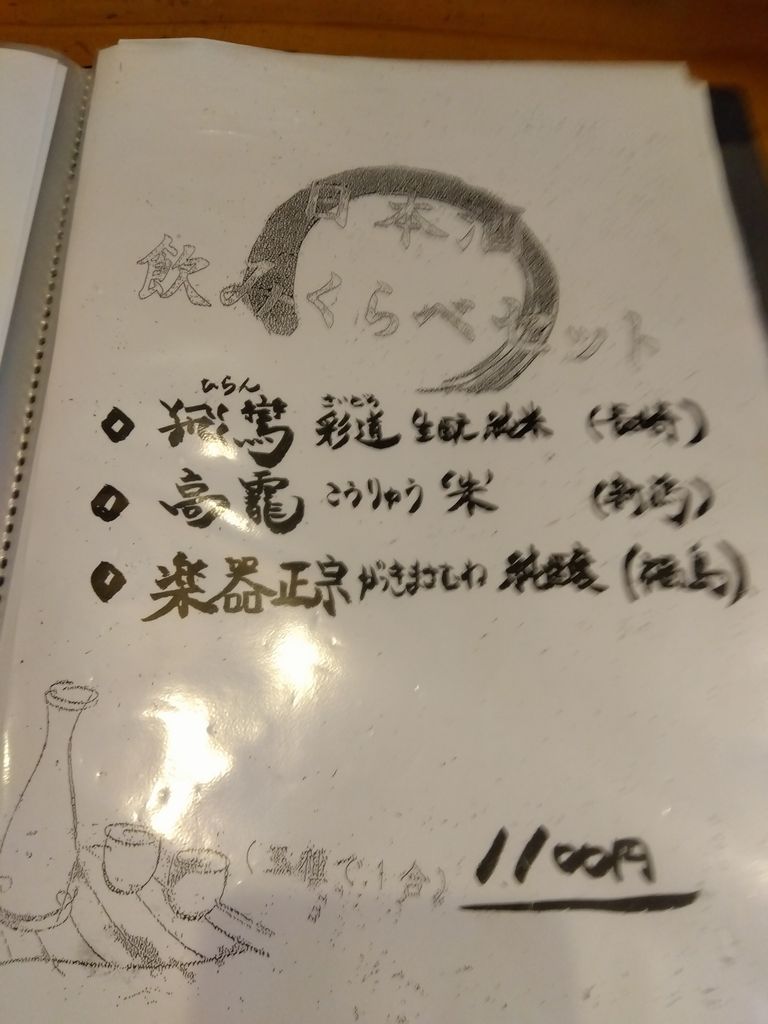 日本酒
飲みくらべセット
ひらん さいどう
飛鸞 彩道 生酛 純米 (長崎)
高龗 こうりゅう "朱" (新潟)
楽器正宗 がっきまさむね 純醸 (福島)
(三種で1合) 1100円